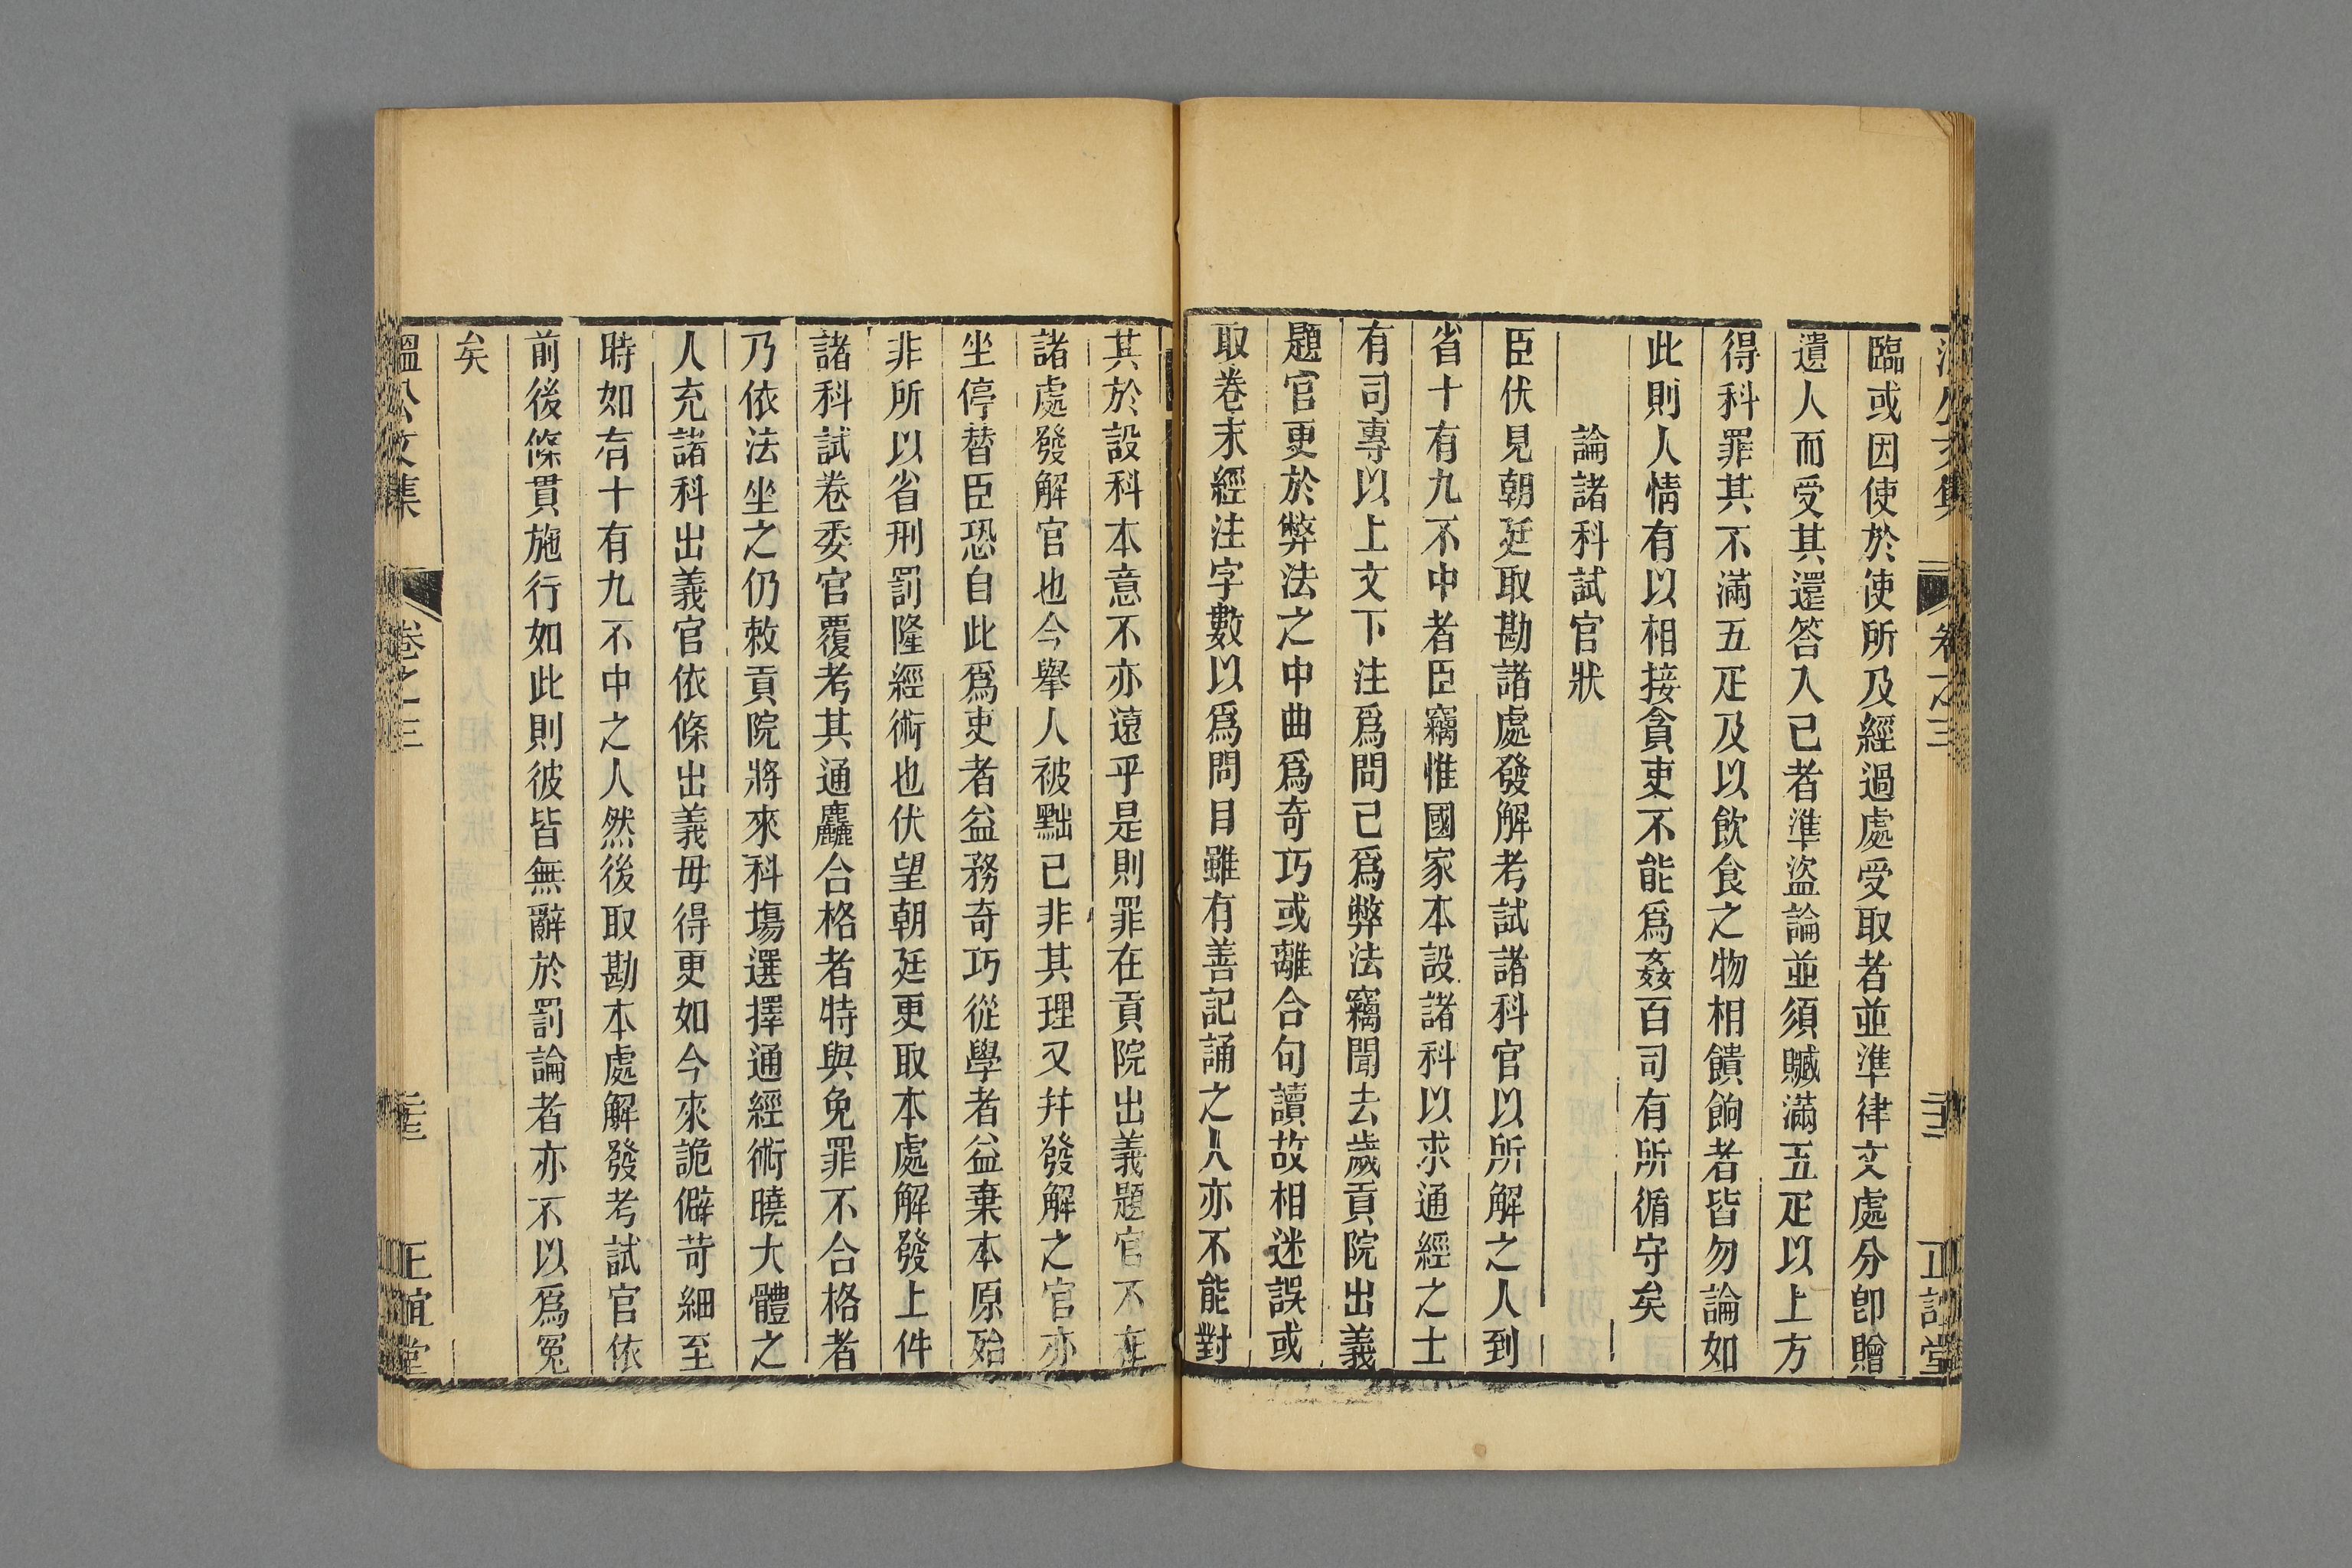 臨或因使於使所及經過處受取者並準律文處分卽贈
遺人而受其還答入己者準盜論並須贓滿五疋以上方
得科罪其不滿五疋及以飲食之物相饋餉者皆勿論如
此則人情有以相接貪吏不能爲姦百司有所循守矣
論諸科試官狀
臣伏見朝廷取勘諸處發解考試諸科官以所解之人到
省十有九不中者臣竊惟國家本設諸科以求通經之士
有司專以上文下注爲問己爲弊法竊聞去歲貢院出義
題官更於弊法之中曲爲奇巧或離合句讀故相迷誤或
取卷末經注字數以爲問目雖有善記誦之人亦不能對
其於設科本意不亦遠乎是則罪在貢院出義題官不在
諸處發解官也今舉人被黜己非其理又幷發解之官亦
坐停替臣恐自此爲吏者益務奇巧從學者益棄本原殆
非所以省刑罰隆經術也伏望朝廷更取本處解發上件
諸科試卷委官覆考其通麤合格者特與免罪不合格者
乃依法坐之仍敕貢院將來科場選擇通經術曉大體之
人充諸科出義官依條出義毋得更如今來詭僻苛細至
時如有十有九不中之人然後取勘本處解發考試官依
前後條貫施行如此則彼皆無辭於罰論者亦不以爲冤
矣
溫公文集 卷之三 二十三 正誼堂